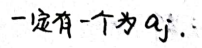 一定有一个为 aj.